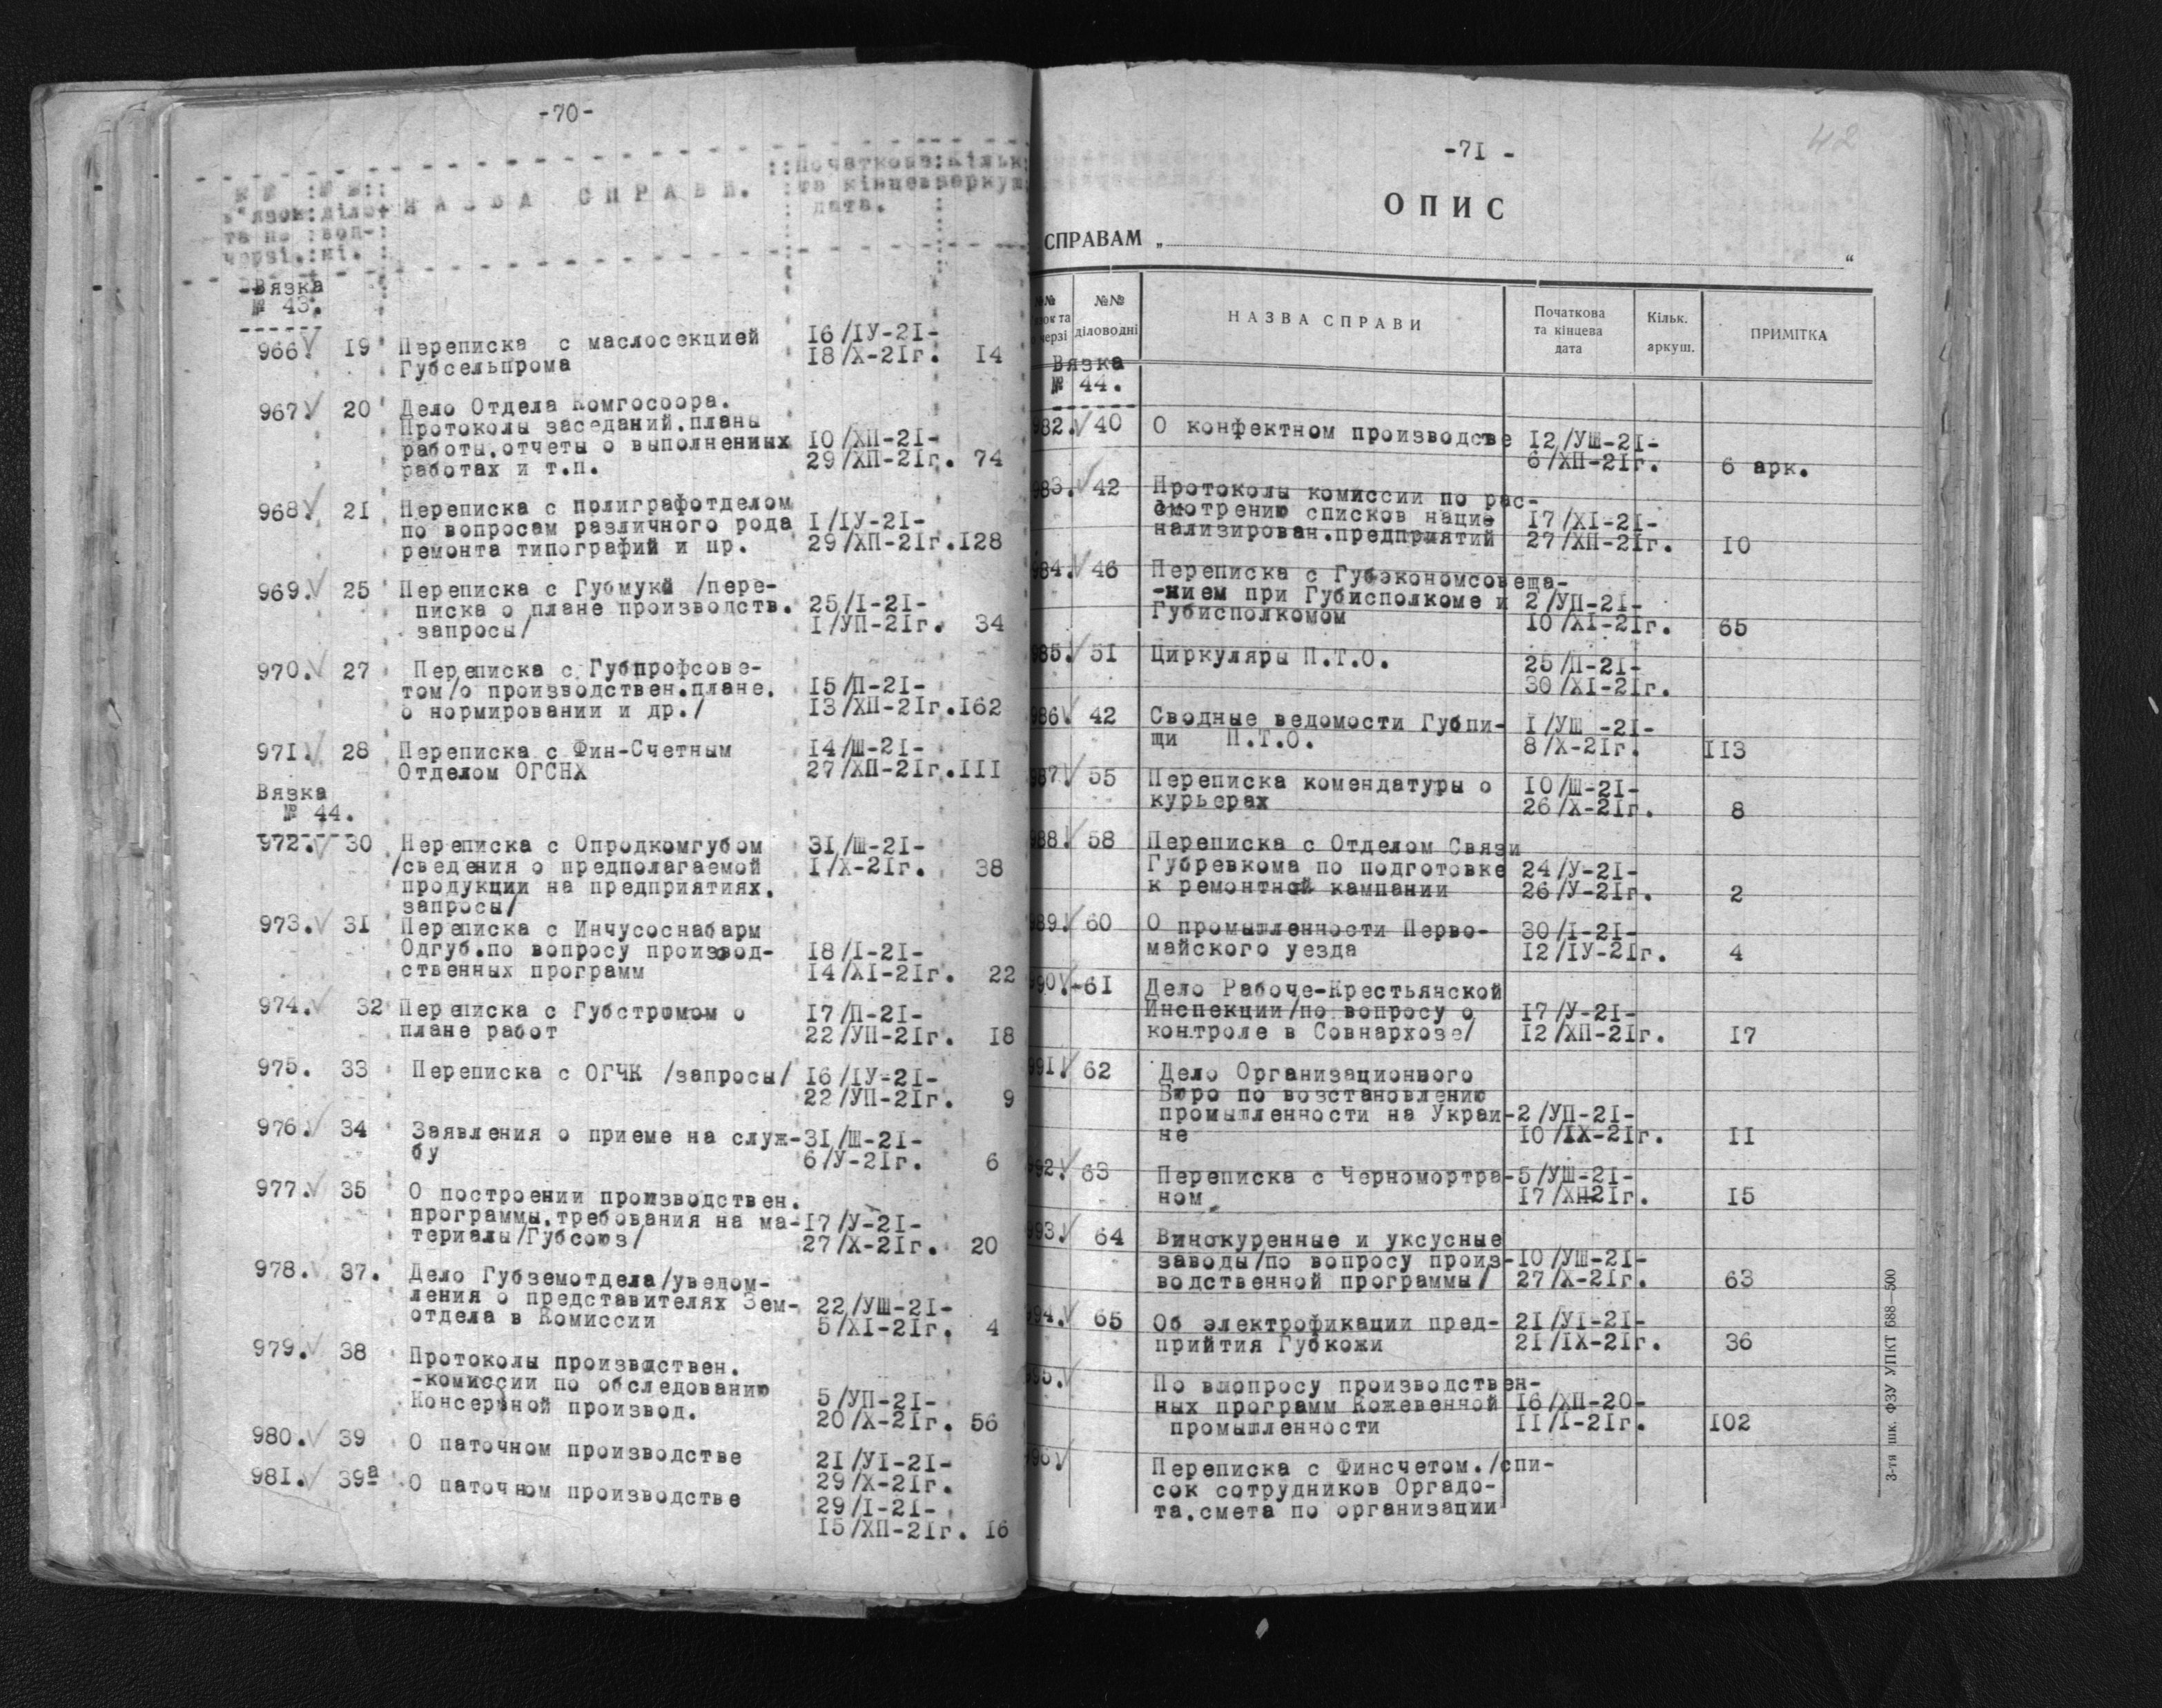 -70-
№ № :№ №:
в'язок:діло-
та по :вод-:
черзі.:ні. :
НАЗВА СПРАВИ.
:Початкова:Кільк
та кінцев:аркуш
дата.
Вязка
№ 43.
966. 19 Переписка с маслосекцией 16/IУ-2I-
Губсельпрома 18/Х-2Iг. I4
967. 20 Дело Отдела Комгосоора.
Протоколы заседаний.планы
работы.отчеты о выполненных 10/ХП-2I-
работах и т.п. 29/ХП-2Iг. 74
968. 2I Переписка с полиграфотделом
по вопросам различного рода I/IУ-2I-
ремонта типографий и пр. 29/ХП-2Iг.I28
969. 25 Переписка с Губмука /пере-
писка о плане производств. 25/I-2I-
запросы/ I/УП-2Iг. 34
970. 27 Переписка с Губпрофсове-
том/о производствен.плане. I5/П-2I-
о нормировании и др./ I3/ХП-2Iг.I62
97I. 28 Переписка с Фин-Счетным I4/Ш-2I-
Отделом ОГСНХ 27/ХП-2Iг.III
Вязка
№ 44.
972. 30 Переписка с Опродкомгубом 3I/Ш-2I-
/сведения о предполагаемой I/Х-2Iг. 38
продукции на предприятиях.
запросы/
973. 3I Переписка с Инчусоснабарм
Одгуб.по вопросу производ- I8/I-2I-
ственных программ I4/ХI-2Iг. 22
974. 32 Переписка с Губстромом о I7/П-2I-
плане работ 22/УП-2Iг. I8
975. 33 Переписка с ОГЧК /запросы/ I6/IУ-2I-
22/УП-2Iг. 9
976. 34 Заявления о приеме на служ-3I/Ш-2I-
бу 6/У-2Iг. 6
977. 35 О построении производствен.
программы.требования на ма-I7/У-2I-
териалы/Губсоюз/ 27/Х-2Iг. 20
978. 37. Дело Губземотдела/уведом-
ления о представителях Зем- 22/УШ-2I-
отдела в Комиссии 5/ХI-2Iг. 4
979. 38 Протоколы производствен.
-комиссии по обследованию 5/УП-2I-
Консервной производ. 20/Х-2Iг. 56
980. 39 О паточном производстве 2I/УI-2I-
29/Х-2Iг.
98I. 39а О паточном производстве 29/I-2I-
I5/ХП-2Iг. I6
-7I -
42
ОПИС
СПРАВАМ „ “
№№
та
черзі
№№
діловодні
НАЗВА СПРАВИ
Початкова
та кінцева
дата
Кільк.
аркуш.
ПРИМІТКА
Вязка
№ 44.
82. 40 О конфектном производстве I2/УШ-2I-
6/ХП-2Iг. 6 арк.
83. 42 Протоколы комиссии по рас-
смотрению списков нацио I7/ХI-2I-
нализирован.предприятий 27/ХП-2Iг. IO
84. 46 Переписка с Губэкономсовеща-
-нием при Губисполкоме и 2/УП-2I-
Губисполкомом IO/ХI-2Iг. 65
85. 5I Циркуляры П.Т.О. 25/П-2I-
30/ХI-2Iг.
86. 42 Сводные ведомости Губпи- I/УШ -2I-
щи П.Т.О. 8/Х-2Iг. II3
87. 55 Переписка комендатуры о IO/Ш-2I-
курьерах 26/Х-2Iг. 8
88. 58 Переписка с Отделом Связи
Губревкома по подготовке 24/У-2I-
к ремонтной кампании 26/У-2Iг. 2
89. 60 О промышленности Перво- 30/I-2I-
майского уезда I2/IУ-2Iг. 4
90.-6I Дело Рабоче-Крестьянской
Инспекции/по вопросу о I7/У-2I-
контроле в Совнархозе/ I2/ХП-2Iг. I7
99I. 62 Дело Организационвого
Бюро по возстановлению
промышленности на Украи-2/УП-2I-
не IO/IХ-2Iг. II
92. 63 Переписка с Черномортра-5/УШ-2I-
ном I7/ХП2Iг. I5
93. 64 Винокуренные и уксусные
заводы/по вопросу произ-IO/УШ-2I-
водственной программы/ 27/Х-2Iг. 63
94. 65 Об электрофикации пред- 2I/УI-2I-
прийтия Губкожи 2I/IХ-2Iг. 36
95. По вшопросу производствен-
ных программ Кожевенной I6/ХП-20-
промышленности II/I-2Iг. IO2
96 Переписка с Финсчетом./спи-
сок сотрудников Оргадо-
та.смета по организации
3-тя шк. ФЗУ УПКТ 688—500